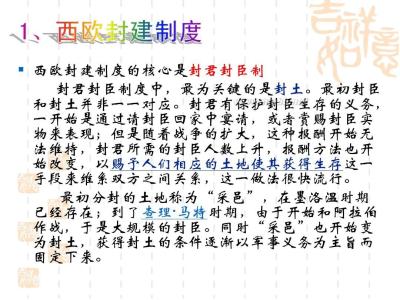 1、西欧封建制度
西欧封建制度的核心是封君封臣制
封君封臣制度中，最为关键的是封土。最初封臣
和封土并非一一对应。封君有保护封臣生存的义务，
一开始是通过请封臣回家中宴请，或者赏赐封臣实
物来表现；但是随着战争的扩大，这种报酬开始无
法维持，封君所需的封臣人数上升，报酬方法也开
始改变，以赐予人们相应的土地使其获得生存这一
手段来维系双方之间关系，这一做法很快流行。
最初分封的土地称为“采邑”，在墨洛温时期
已经存在；到了查理·马特时期，由于开始和阿拉伯
作战，于是大规模的封臣。同时“采邑”也开始变
为封土，获得封土的条件逐渐以军事义务为主旨而
固定下来。
吉祥如意